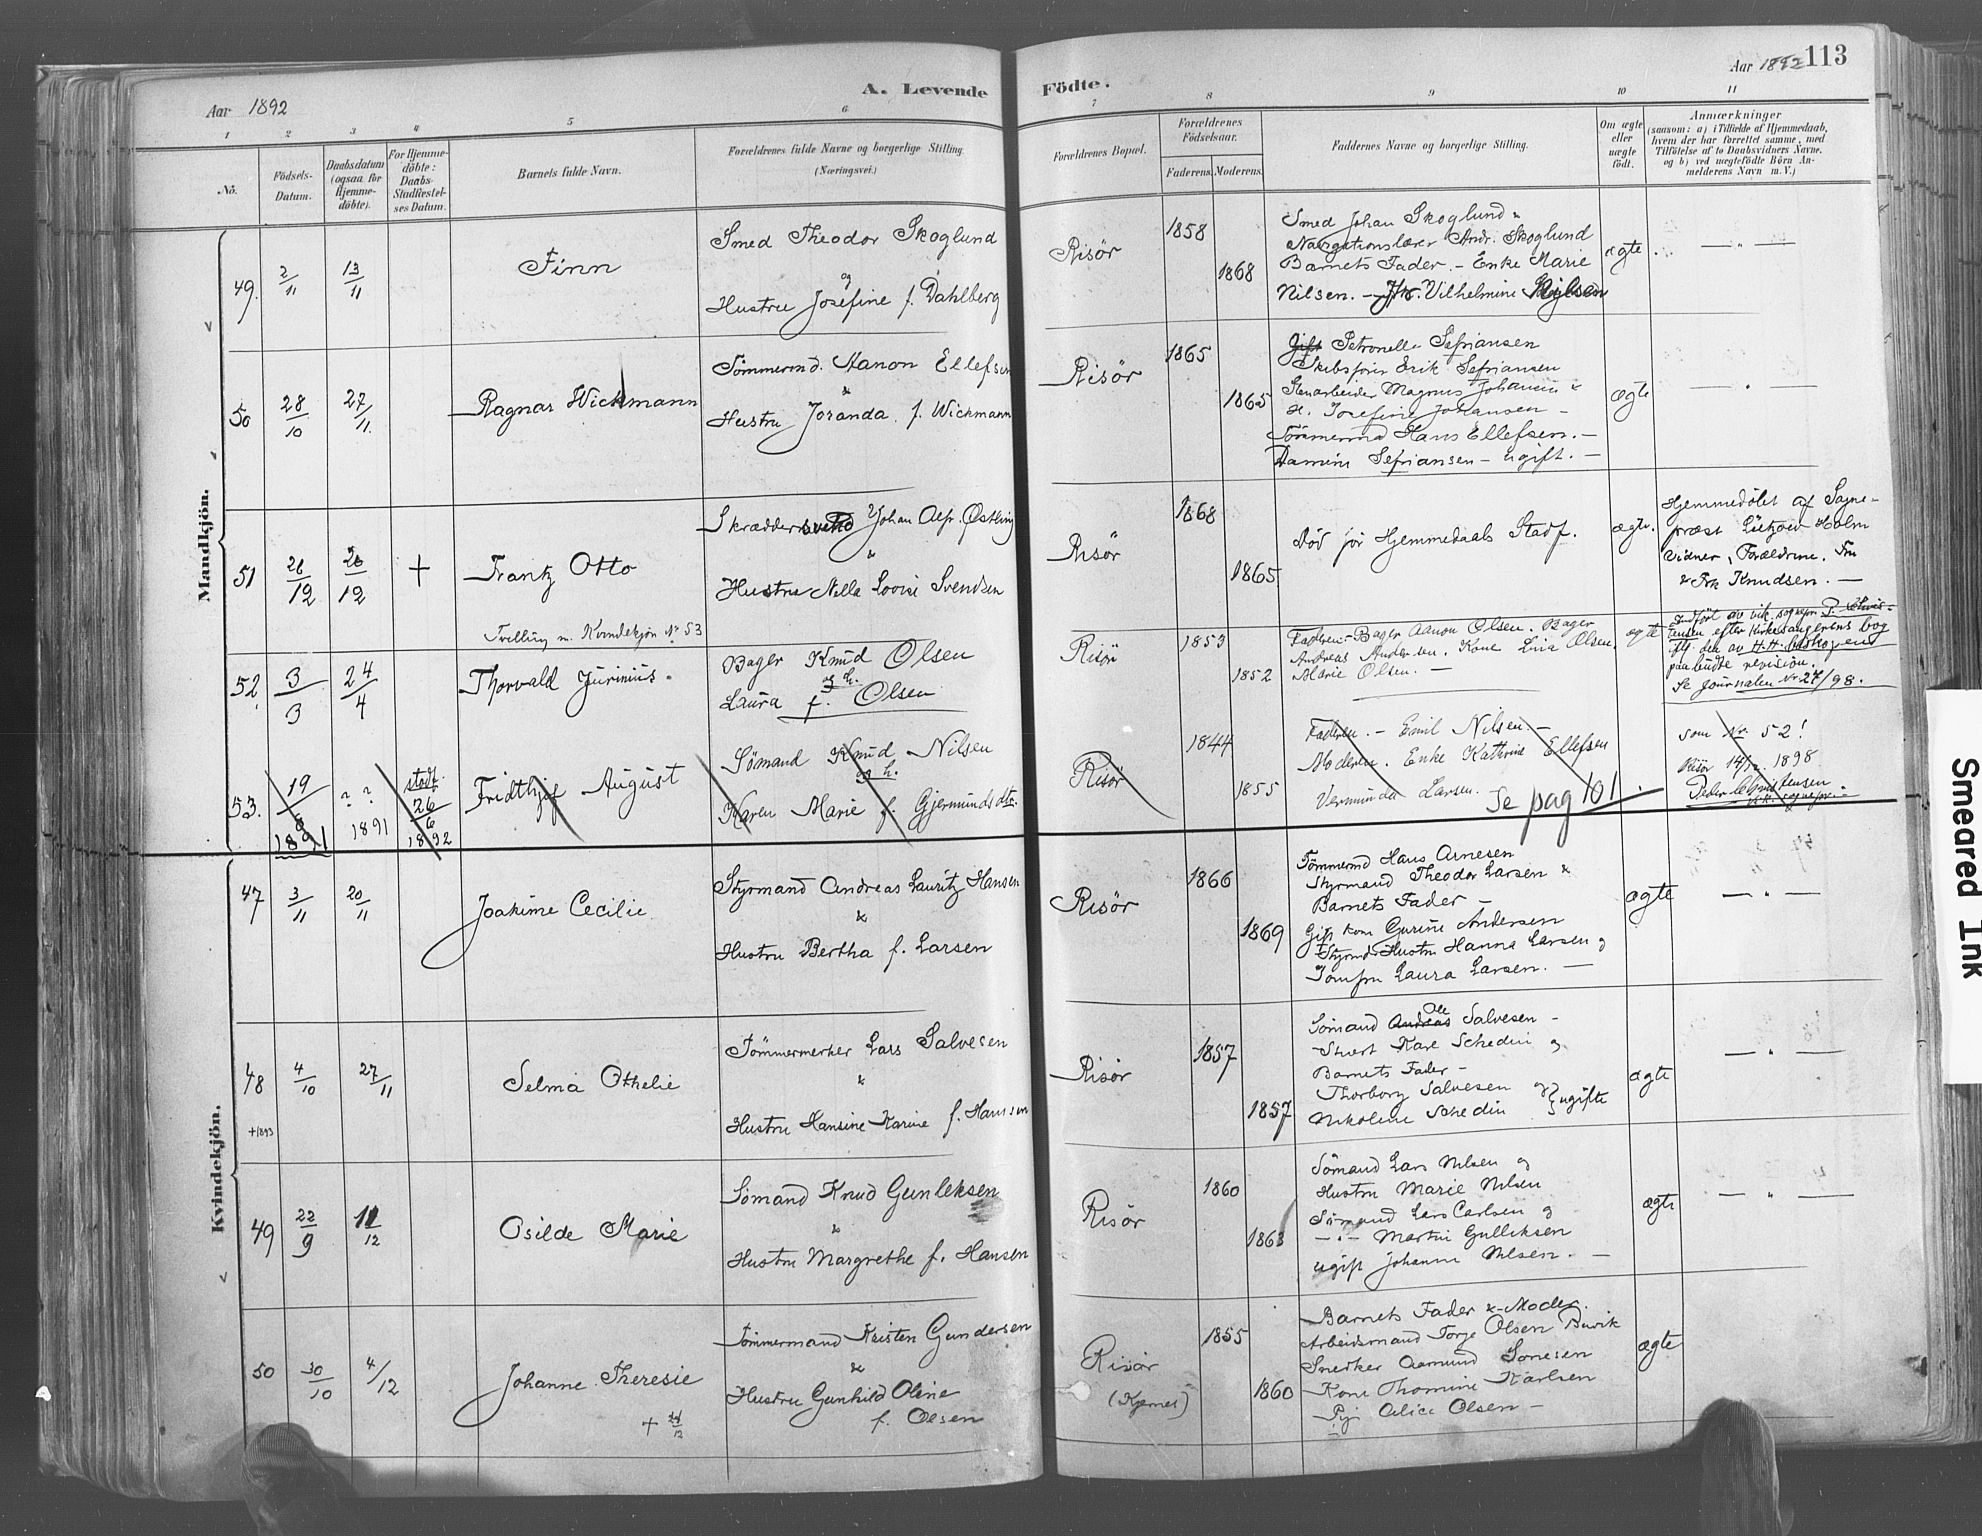 Aar 1892
A. Levende Födte.
Aar 1892 113
1 2 3 4 5 6 7 8 9 10 11
No.
Födsels-
Datum.
Daabsdatum
(ogsaa for
Hjemme-
döbte).
For Hjemme-
döbte:
Daabs-
Stadfæstel-
ses Datum.
Barnets fulde Navn.
Forældrenes fulde Navne og borgerlige Stilling.
(Næringsvei.)
Forældrenes Bopæl.
Forældrenes
Födselsaar.
Faderens. Moderens.
Faddernes Navne og borgerlige Stilling.
Om ægte
eller
uægte
födt.
Anmærkninger
(saasom: a) i Tilfælde af Hjemmedaab,
hvem der har forrettet samme, med
Tilföielse af to Daabsvidners Navne,
og b) ved uægtefödte Börn An-
melderens Navn m. V.)
Mandkjön.
49. 2/11 13/11
Finn
Smed Theodor Skoglund
og
Hustru Josefine f. Dahlberg
Risör
1858
1868
Smed Johan Skoglund &
Navigationslærer Andr. Skoglund
Barnets Fader. - Enke Marie
Nilsen. - Vilhelmine
ægte
— " —
50 28/10 27/11.
Ragnar Wickmann
Tömmermd. Aanon Ellefsen
&
Hustru Joranda f. Wickmann
Risör
1865
1865
Gift Petronelle Sefriansen
Skibsförer Erik Sefriansen
Stenarbeider Magnus Johansen &
H. Josefine Johansen -
Tömmermd Hans Ellefsen. -
Damine Sefriansen - ugift. -
ægte
— " —
51 26/12 26/12 +
Frantz Otto
Tvilling m. Kvindekjön No 53
Skræddersvend Johan Alfr. Østling
&
Hustru Nilla Lovise Svendsen
Risör
1868
1865
Död før Hjemmedaabs Stadf.
ægte.
Hjemmedöbt af Sogne-
præst Lützow Holm
Vidner, Forældrene. Fru
& Frk Knudsen. -
52. 3/3 24/4
Thorvald Jurinius.
Bager Knud Olsen
og h.
Laura f. Olsen
Risör
1853
1852
Faderen - Bager Aanon Olsen. Bager
Andreas Andersen. Kone Lina Olsen.
Marie Olsen. -
ægte
Indført av vik. sognepr. P. Chris-
tensen efter Kirkesangerens bog
ifl. den av H.H. biskopen
paabudte revision.
Se Journalen Nr 27/98.
53. 19/8 1891
? ?
1891
stadf.
26/6
1892
Fridthjof August
Sømand Knud Nilsen
og h.
Karen Marie f. Gjermundsdtr.
Risør
1844
1855
Faderen. - Emil Nilsen. -
Moderen. Enke Kathrine Ellefsen
Vermunda Larsen.
Se pag 101.
som Nr. 52!
Risör 14/12 1898
Peder Christensen
vik. sognepr. -
Kvindekjön.
47 3/11 20/11
Joakime Cecilie
Styrmand Andreas Lauritz Hansen
&
Hustru Bertha f. Larsen
Risör
1866
1869
Tömmermd Hans Arnesen
Styrmand Theodor Larsen &
Barnets Fader -
Gift kone Gurine Andersen
Styrmds Hustru Hanna Larsen og
Jomfru Laura Larsen. -
ægte
— " —
48 4/10 27/11
+1893
Selma Othelie
Tömmermerker Lars Salvesen
&
Hustru Hansine Karine f. Hansen
Risör
1857
1857
Sömand Andreas Ole Salvesen -
Stuert Karl Schedin og
Barnets Fader -
Thorborg Salvesen og
Nikoline Schedin } ugifte
ægte
— " —
49 22/9 11/12
Osilde Marie
Sömand Knud Gunleksen
&
Hustru Margrethe f. Hansen
Risör
1860
1863
Sömand Lars Nilsen og
Hustru Marie Nilsen
Sömand Lars Carlsen og
- " - Martin Gulliksen
ugift Johanne Nilsen. -
ægte
— " —
50 30/10 4/12
Johanne Theresie
+ 24/12
Tömmermand Kristen Gundersen
&
Hustru Gunhild Oline
f. Olsen
Risör
(Kjernes)
1855
1860
Barnets Fader & Moder.
Arbeidsmand Torje Olsen Buvik
Snedker Aamund Sönesen
Kone Thomine Karlsen
Pige Alice Olsen -
ægte
Smeared Ink
A